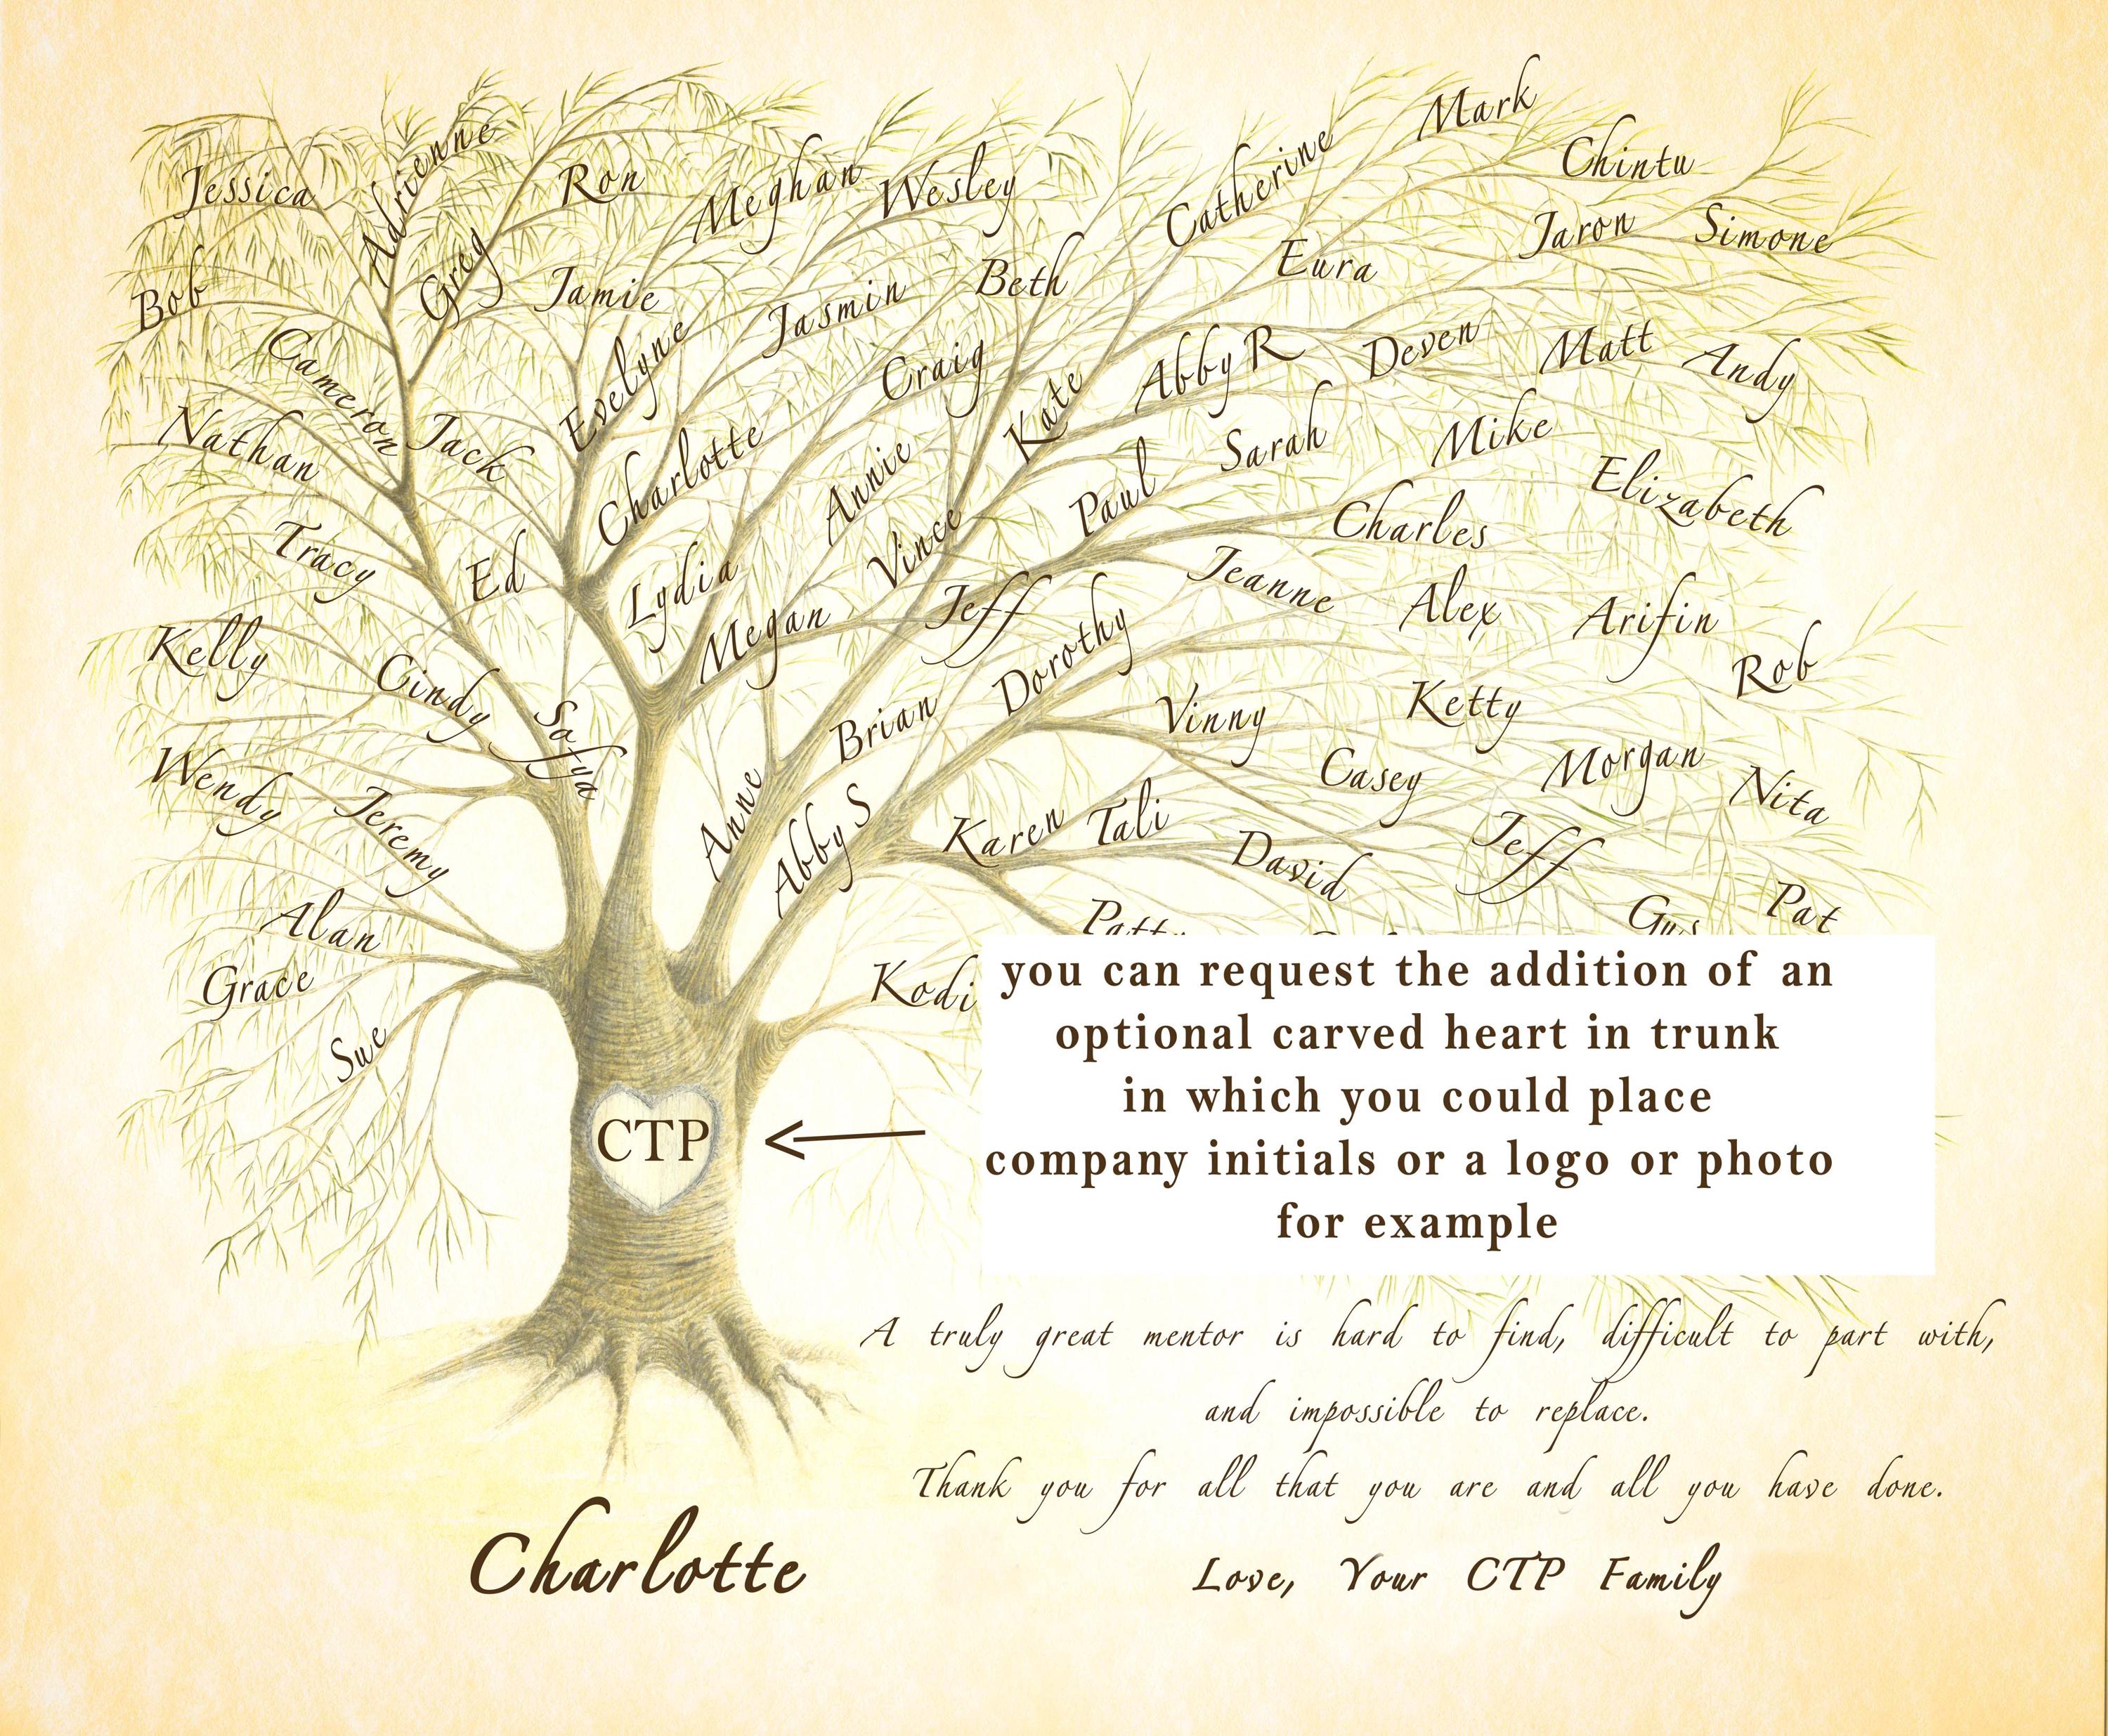 Mark
Adrienne
Chintu
Jessica
Ron
Meghan
Wesley
Catherine
Jaron
Simone
Bob
Greg
Jamie
Jasmin
Beth
Eura
Cameron
Evelyne
Craig
Kate
Abby R
Deven
Matt
Andy
Nathan
Jack
Charlotte
Annie
Sarah
Mike
Paul
Elizabeth
Tracy
Ed
Lydia
Vince
Charles
Megan
Jeff
Jeanne
Alex
Arifin
Kelly
Cindy
Sofya
Dorothy
Rob
Brian
Vinny
Ketty
Wendy
Jeremy
Anne
Abby S
Karen
Tali
Casey
Morgan
Nita
David
Jeff
Alan
Gus
Pat
Grace
Kodi
Sue
you can request the addition of an
optional carved heart in trunk
in which you could place
company initials or a logo or photo
for example
CTP
A truly great mentor is hard to find, difficult to part with,
and impossible to replace.
Thank you for all that you are and all you have done.
Charlotte
Love, Your CTP Family